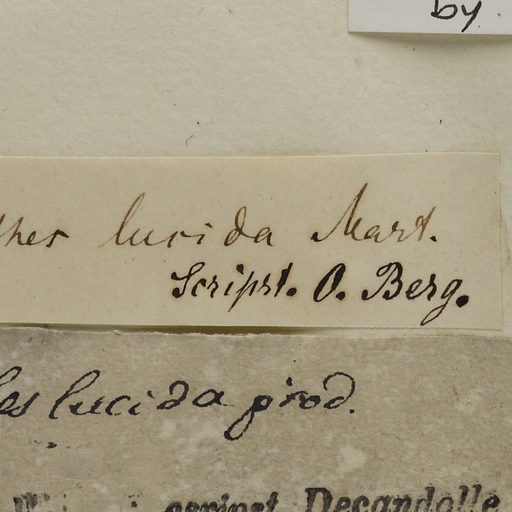 by
lucida Mart.
Scripst. O. Berg.
lucida prod.
scripst Decandolle